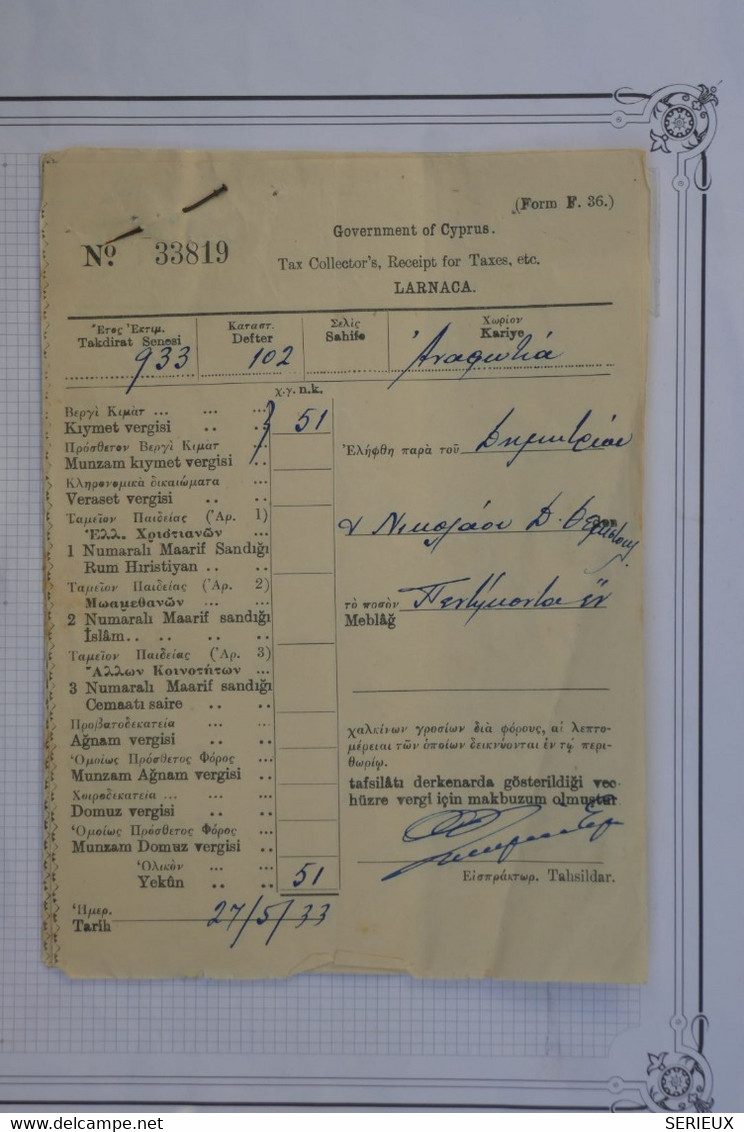 (Form F. 36.)
Government of Cyprus.
Nº 33819
Tax Collector's, Receipt for Taxes, etc.
LARNACA.
Ἔτος Ἐκτιμ. Καταστ. Σελὶς Χωρίον
Takdirat Senesi Defter Sahife Kariye
933 102 Ἀναφωτιά
χ.γ. n.k.
Βεργὶ Κιμὰτ ... ... ...
Kıymet vergisi .. .. 51
Πρόσθετον Βεργὶ Κιμὰτ ...
Munzam kıymet vergisi
Ἐλήφθη παρὰ τοῦ Δημητρίου
Κληρονομικὰ δικαιώματα ...
Veraset vergisi .. ..
Ταμεῖον Παιδείας (Ἀρ. 1)
Ἑλλ. Χριστιανῶν ...
& Νικολάου Δ.
1 Numaralı Maarif Sandığı
Rum Hıristiyan .. ..
Ταμεῖον Παιδείας (Ἀρ. 2)
Μωαμεθανῶν ... ...
τὸ ποσὸν Πεντήκοντα ἓν
Meblâğ
2 Numaralı Maarif sandığı
İslâm.. .. .. ..
Ταμεῖον Παιδείας (Ἀρ. 3)
Ἄλλων Κοινοτήτων ...
3 Numaralı Maarif sandığı
Cemaatı saire .. ..
Προβατοδεκατεία ... ...
Ağnam vergisi .. ..
Ὁμοίως Πρόσθετος Φόρος ...
Munzam Ağnam vergisi ..
Χοιροδεκατεία ... ... ...
Domuz vergisi .. ..
Ὁμοίως Πρόσθετος Φόρος ...
Munzam Domuz vergisi ..
χαλκίνων γροσίων διὰ φόρους, αἱ λεπτο-
μέρειαι τῶν ὁποίων δεικνύονται ἐν τῷ περι-
θωρίῳ.
tafsilâtı derkenarda gösterildiği vec-
hüzre vergi için makbuzum olmuştur
Ὁλικὸν ... ...
Yekûn .. .. 51
Εἰσπράκτωρ. Tahsildar.
Ἡμερ.
Tarih 27/5/33
delcampe.net
SERIEUX